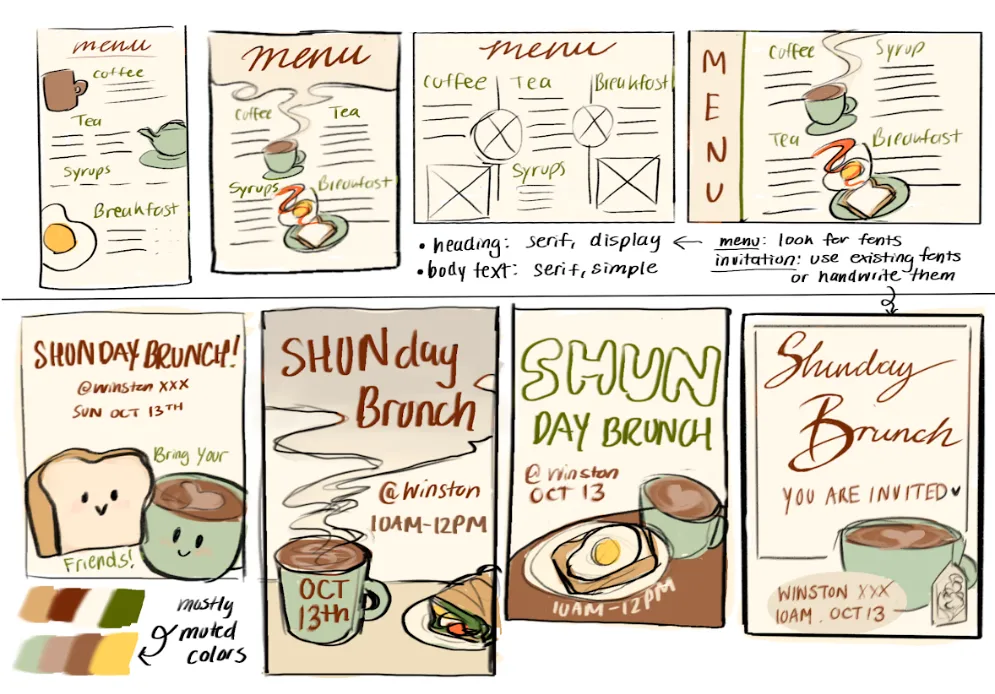 menu
coffee
Tea
Syrups
Breakfast
menu
Coffee
Tea
Syrups
Breakfast
menu
Coffee
Tea
Breakfast
Syrups
MENU
Coffee
Syrup
Tea
Breakfast
• heading: serif, display
• body text: serif, simple
← menu: look for fonts
invitation: use existing fonts
or handwrite them
SHUNDAY BRUNCH!
@Winston XXX
SUN OCT 13TH
Bring Your
Friends!
SHUNday
Brunch
@Winston
10AM-12PM
OCT
13th
SHUN
DAY BRUNCH
@Winston
OCT 13
10AM-12PM
Shunday
Brunch
YOU ARE INVITED♥
WINSTON XXX
10AM. OCT 13
mostly
muted
colors